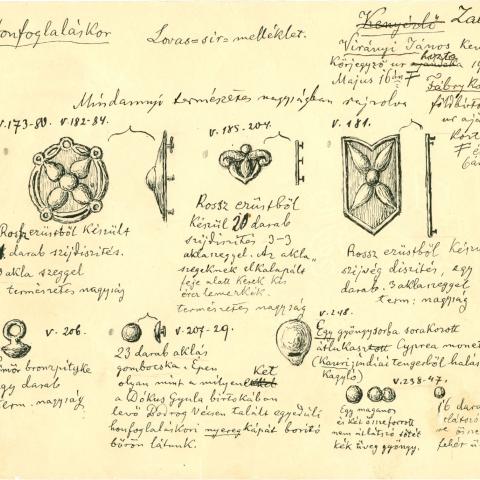 onfoglaláskor
Lovas=sír=melléklet.
Kenyérlő
Virányi János
Körjegyző ur hozta
Május 16án
Fábry
ur
Mindannyi természetes nagyságban rajzolva
V.173-80. V.182-84.
V.185-204.
V.181.
Rossz ezüstből készült
darab szíjdíszítés.
akla szeggel
természetes nagyság
Rossz ezüstből
készül 20 darab
szíjdíszítés 3-3
aklaszeggel. Az akla„
szegeknek elkalapált
feje alatt kerek kis
érczlemezkék.
természetes nagyság
Rossz ezüstből
szíjvég díszítés, egy
darab. 3 aklaszeggel
term: nagyság
V. 206.
bronzpityke
gy darab
term. nagyság
V.207-29.
23 darab aklás
gombocska. Épen
olyan mint a milyen két
a Dókus Gyula birtokában
levő Bodrog Vécsen talált egyedüli
honfoglaláskori nyeregkápát borító
bőrön látunk.
V.248.
Egy gyöngysorba sorakozott
átlukasztott Cyprea moneta
(Kauri) indiai tengerből
Kagyló
V.238-47.
Egy magános
és két összeforrott
nem átlátszó sötét
kék üveg gyöngy.
16
fehér